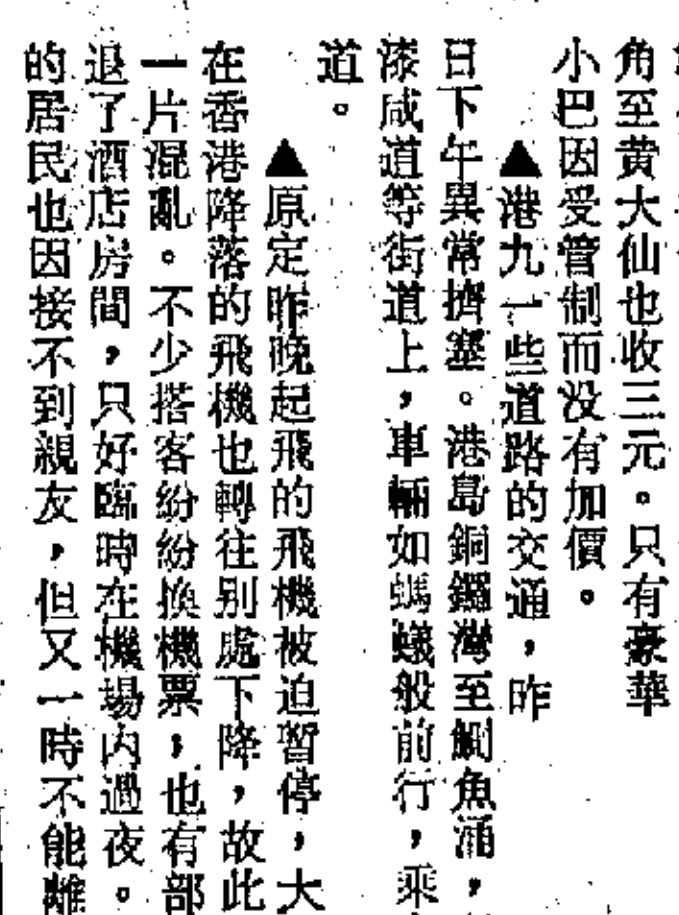 角至黄大仙也收三元。只有豪華
小巴因受管制而没有加價。
▲港九一些道路的交通，昨
日下午異常擠塞。港島銅鑼灣至鰂魚涌，
漆咸道等街道上，車輛如螞蟻般前行，乘
道。
▲原定昨晚起飛的飛機被迫暫停，大
在香港降落的飛機也轉往别處下降，故此
一片混亂。不少搭客紛紛換機票，也有部
退了酒店房間，只好臨時在機場内過夜。
的居民也因接不到親友，但又一時不能離